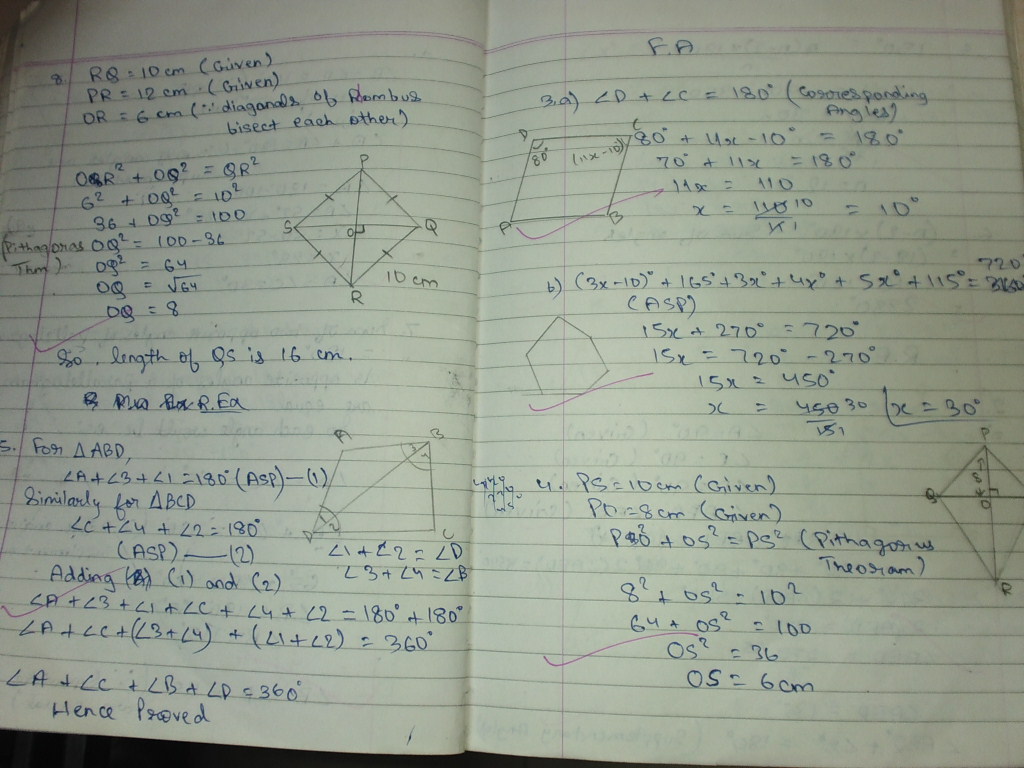 8. RQ = 10 cm (Given)
PR = 12 cm (Given)
OR = 6 cm (∵ diagonals of Rombus
bisect each other)
OR² + OQ² = QR²
6² + OQ² = 10²
36 + OQ² = 100
(Pithagoras OQ² = 100 - 36
Thm) OQ² = 64
OQ = √64
OQ = 8
P
S
O
Q
R
10 cm
So, length of QS is 16 cm.
R.Ex
5. For △ABD,
∠A + ∠3 + ∠1 = 180° (ASP) — (1)
Similarly for △BCD
∠C + ∠4 + ∠2 = 180°
(ASP) — (2)
A
B
C
D
∠1 + ∠2 = ∠D
∠3 + ∠4 = ∠B
Adding (1) and (2)
∠A + ∠3 + ∠1 + ∠C + ∠4 + ∠2 = 180° + 180°
∠A + ∠C + (∠3 + ∠4) + (∠1 + ∠2) = 360°
∠A + ∠C + ∠B + ∠D = 360°
Hence Proved
F.A
3.a) ∠D + ∠C = 180° (Corresponding
Angles)
D
C
80°
(11x-10)
A
B
80° + 11x - 10° = 180°
70° + 11x = 180°
11x = 110
x = 110 10 / 11 1 = 10°
b) (3x-10)° + 165° + 3x° + 4x° + 5x° + 115° = 720°
(ASP)
15x + 270° = 720°
15x = 720° - 270°
15x = 450°
x = 450 30 / 15 1
x = 30°
4. PS = 10 cm (Given)
PO = 8 cm (Given)
PO² + OS² = PS² (Pithagorus
Theoram)
8² + OS² = 10²
64 + OS² = 100
OS² = 36
OS = 6 cm
P
Q
O
R